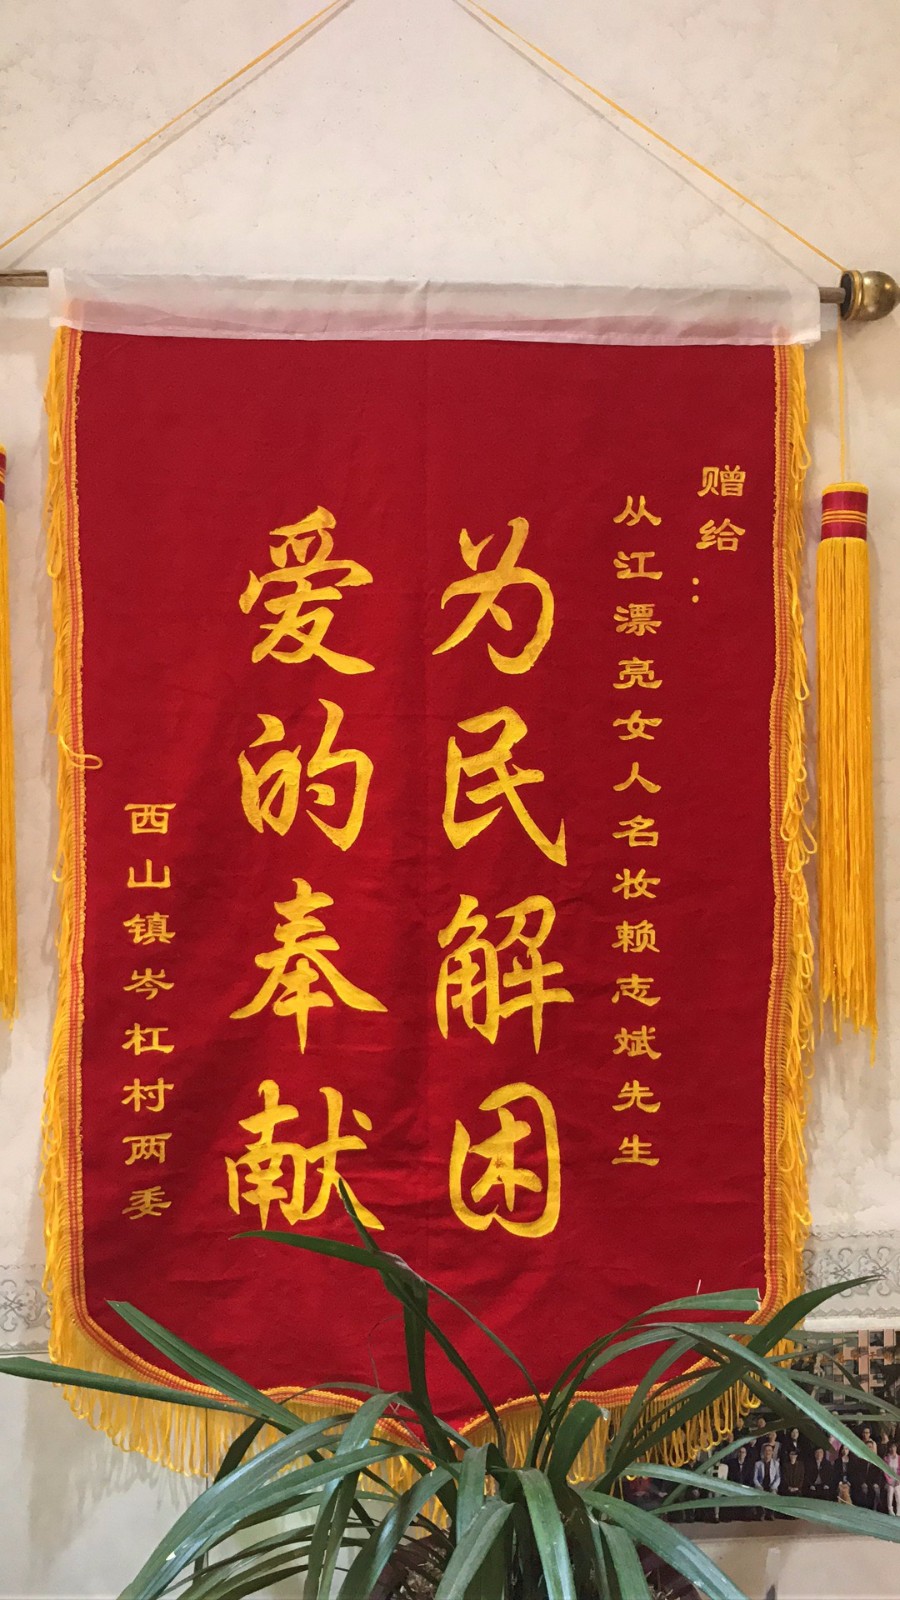 赠给：
从江漂亮女人名妆赖志斌先生
为民解困
爱的奉献
西山镇岑杠村两委